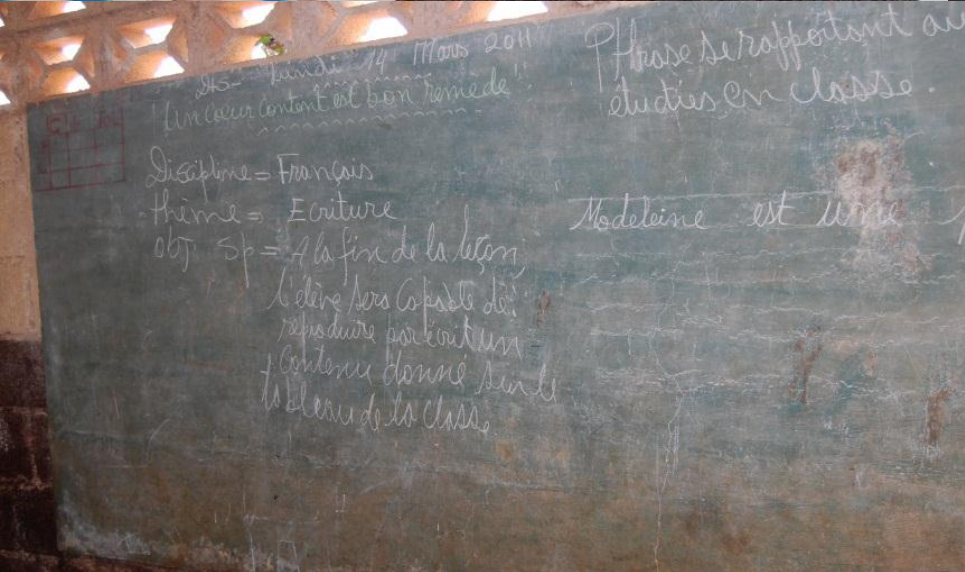 Lundi 14 Mars 2011
"Un coeur content est bon remède"
Discipline = Français
thème = Ecriture
obj sp = A la fin de la leçon,
l'élève sera capable de:
reproduire par écrit un
contenu donné sur le
tableau de la classe.
Phrase se rapportant au
étudies en classe.
Madeleine est une